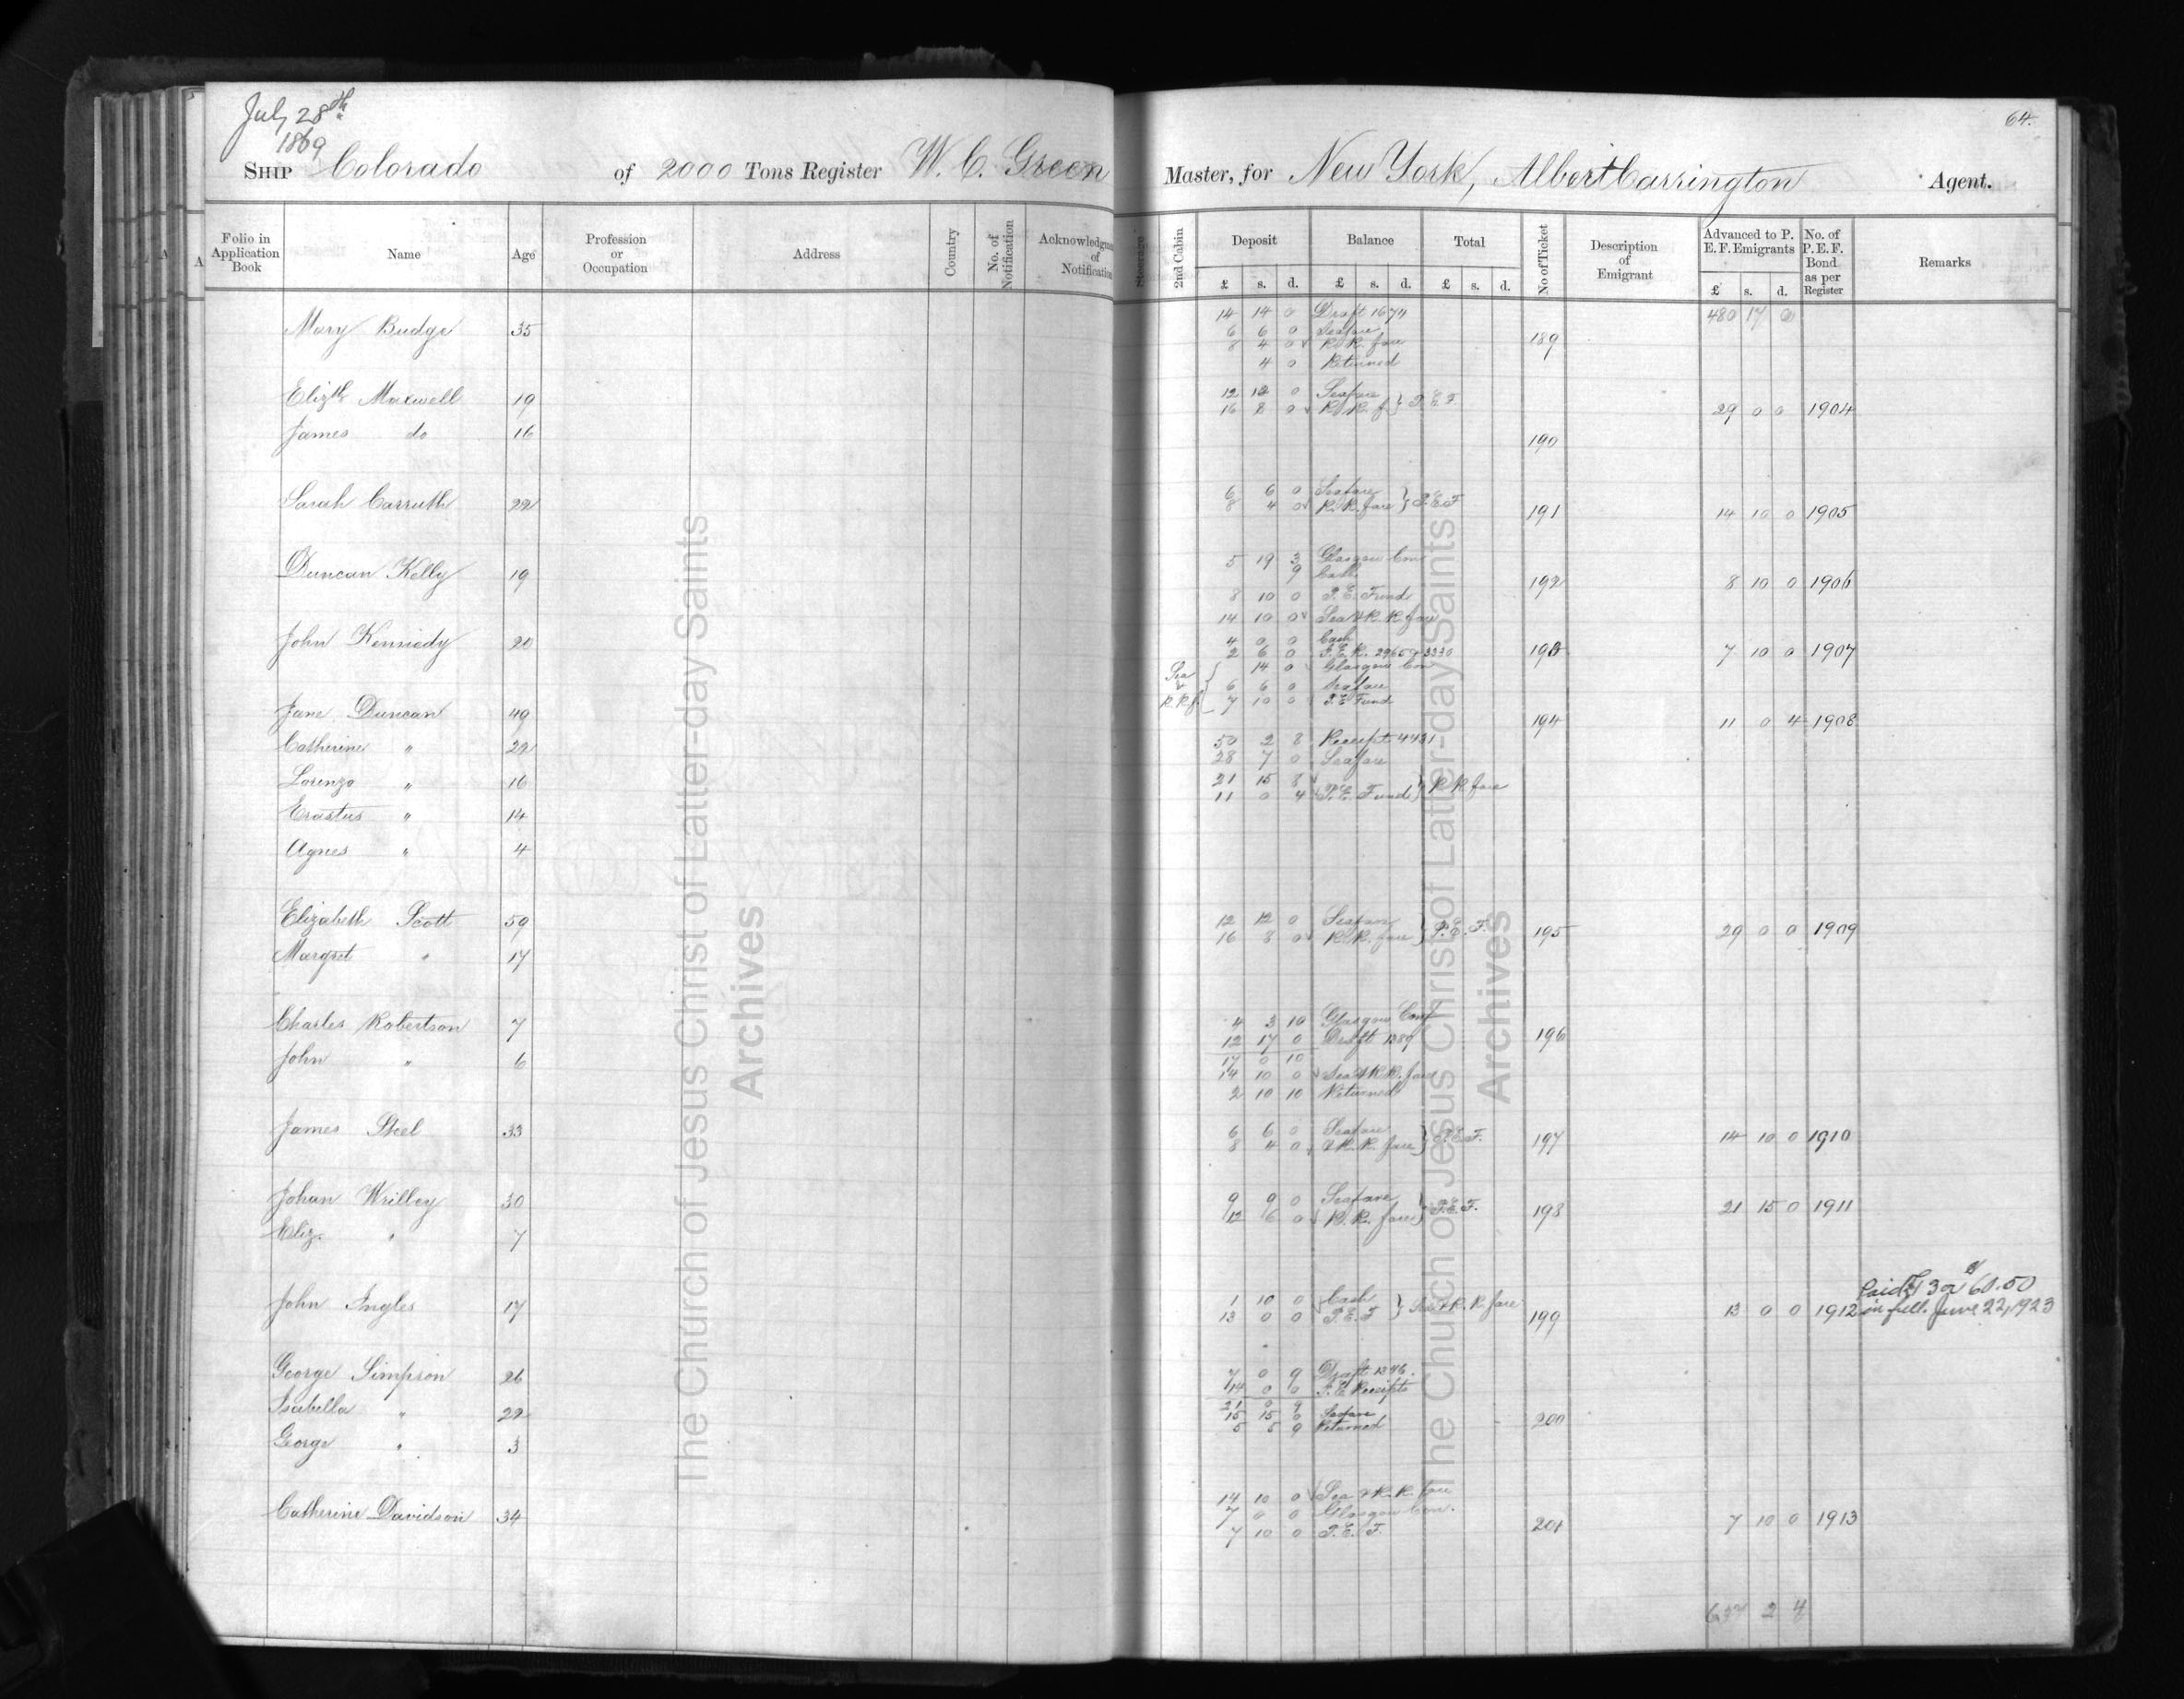 July 28th
1869
64.
SHIP Colorado of 2000 Tons Register W. C. Green Master, for New York, Albert Carrington Agent.
Folio in Application Book
Name
Age
Profession or Occupation
Address
Country
No. of Notification
Acknowledgm of Notification
Steerage
2nd Cabin
Deposit £ s. d.
Balance £ s. d.
Total £ s. d.
No of Ticket
Description of Emigrant
Advanced to P. E. F. Emigrants £ s. d.
No. of P. E. F. Bond as per Register
Remarks
14 14 0 Draft 1674 480 17 0
Mary Budge 35 6 6 0 Seafare 189
8 4 0 R. R. fare
4 0 Returned
Elizth Maxwell 19 12 12 0 Seafare
16 8 0 R. R. f } P. E. F 29 0 0 1904
James do 16 190
Sarah Carruth 22 6 6 0 Seafare
8 4 0 R. R. fare } P. E. F 191 14 10 0 1905
Duncan Kelly 19 5 19 3 Glasgow Con
9 Cash 192 8 10 0 1906
8 10 0 P. E. Fund
14 10 0 Sea & R. R. fare
John Kennedy 20 4 0 0 Cash
2 6 0 P. E. R. 2965 9 3330 193 7 10 0 1907
14 0 Glasgow Con
Sea & R. R. f. { 6 6 0 Seafare
7 10 0 P. E Fund
Jane Duncan 49 194 11 0 4 1908
Catherine " 22 50 2 8 Receipt 4431
28 7 0 Seafare
Lorenzo " 16 21 15 8
11 0 4 P. E. Fund } R R fare
Erastus " 14
Agnes " 4
Elizabeth Scott 59 12 12 0 Seafare
16 8 0 R. R. fare } P. E. F. 195 29 0 0 1909
Margret " 17
Charles Robertson 7 4 3 10 Glasgow Conf
12 17 0 Draft 1389 196
John " 6 17 0 10
14 10 0 Sea & R. R. fare
2 10 10 Returned
James Steel 33 6 6 0 Seafare
8 4 0 & R. R. fare } P. E. F. 197 14 10 0 1910
Johan Wrilley 30 9 9 0 Seafare
12 6 0 R. R. fare } P. E. F. 198 21 15 0 1911
Eliz. " 7
John Ingles 17 1 10 0 Cash
13 0 0 P. E. F } Sea & R. R. fare 199 13 0 0 1912 Paid £13 or $60.50
in full. June 22, 1923
George Simpson 26 7 0 9 Draft 1346.
14 0 0 P. E Receipts
Isabella " 22 21 0 9
15 15 0 Seafare 200
5 5 9 Returned
George " 3
14 10 0 Sea & R. R. fare
Catherine Davidson 34 7 0 0 Glasgow Con.
7 10 0 P. E. F. 201 7 10 0 1913
637 2 4
The Church of Jesus Christ of Latter-day Saints
Archives
The Church of Jesus Christ of Latter-day Saints
Archives